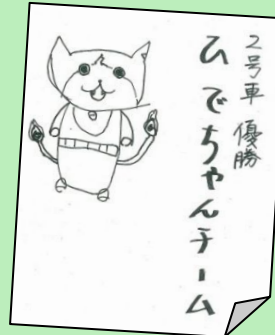 2号車 優勝
ひでちゃんチーム